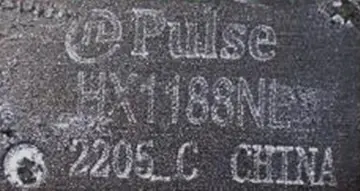 Pulse
HX1188NL
2205_C CHINA